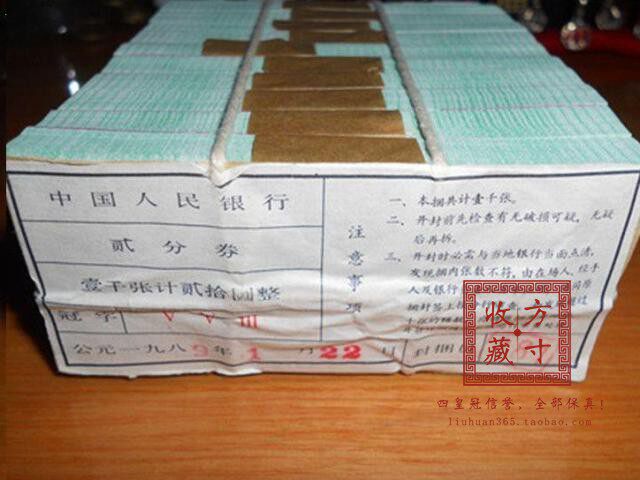 中国人民银行
贰分券
壹千张计贰拾圆整
冠字 V V III
公元一九八9年1月22日
封捆员
注意事项
一、本捆共计壹千张。
二、开封前先检查有无破损可疑,无疑
后再拆。
三、开封时必需与当地银行当面点清,
发现捆内张数不符,由在场人、经手
人及银行
收方
藏寸
四皇冠信誉,全部保真!
liuhuan365.taobao.com